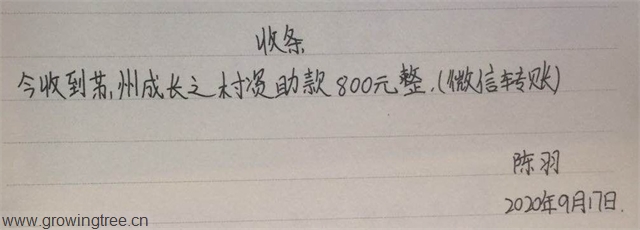 收条
今收到苏州成长之村资助款800元整.(微信转账)
陈羽
2020年9月17日.
www.growingtree.cn